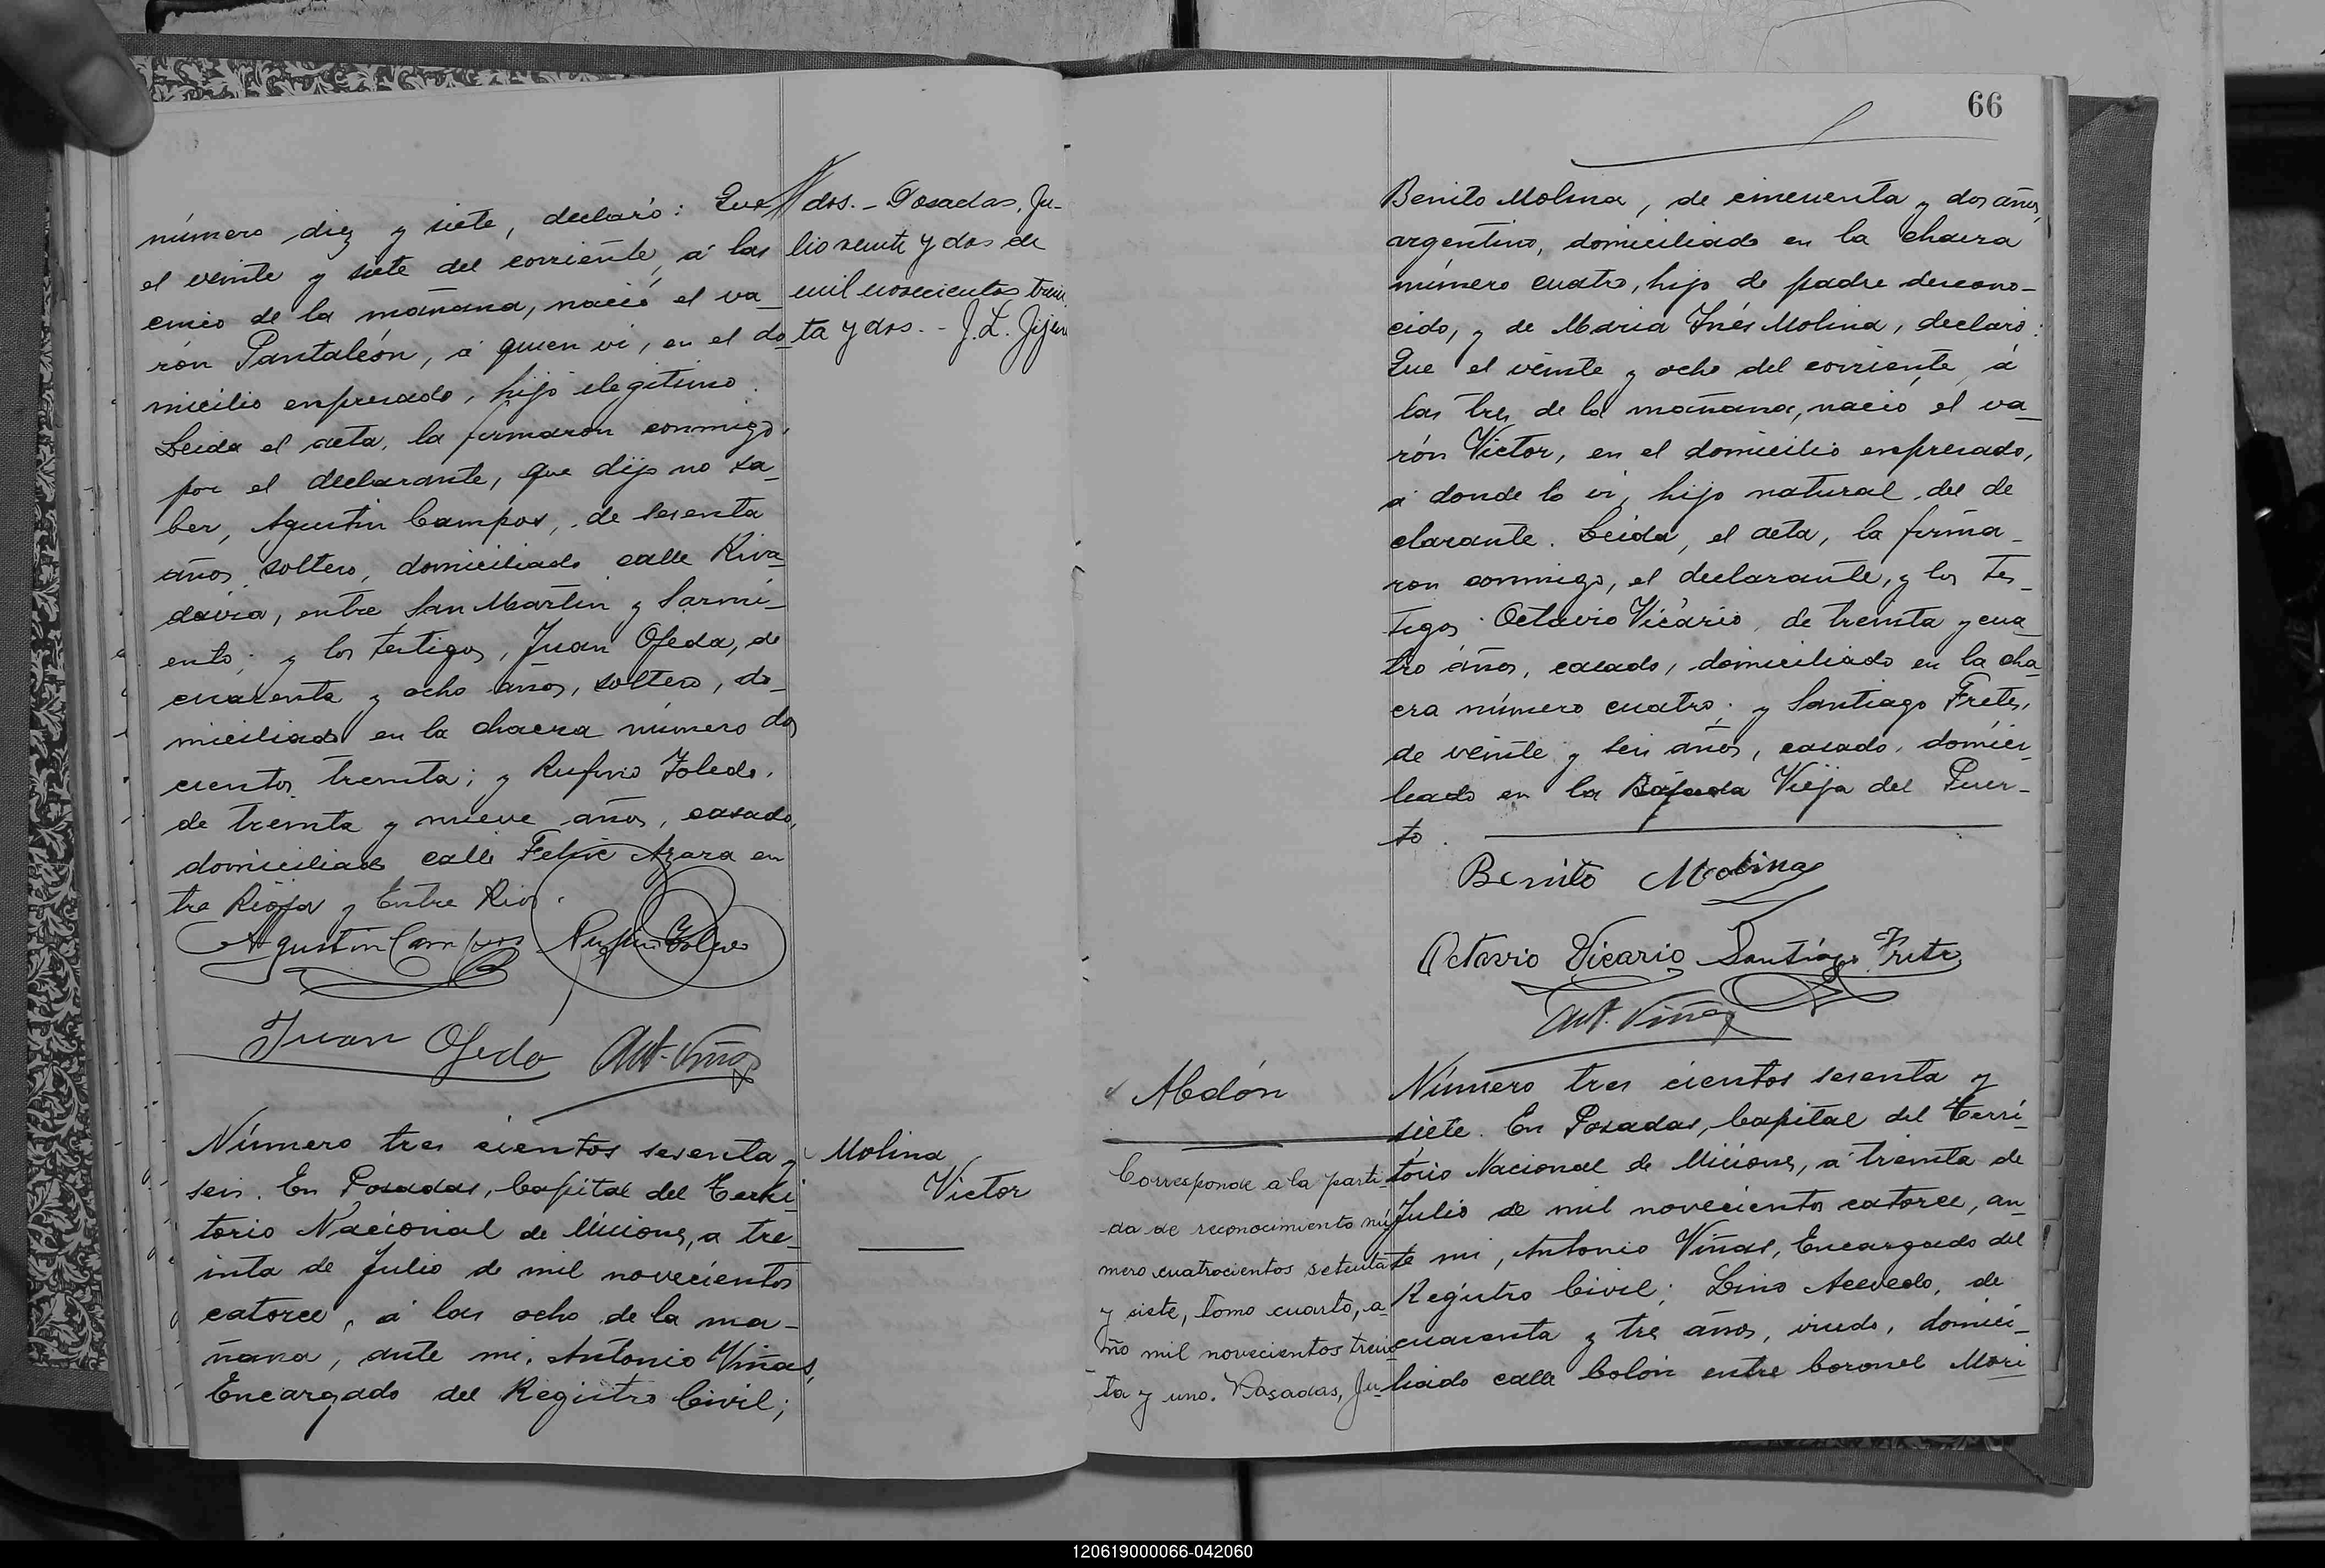 número diez y siete, declaró: Que
el veinte y siete del corriente, á las
cinco de la mañana, nació el va_
rón Pantaleón, á quien vi, en el do_
micilio expresado, hijo ilegitimo.
Leida el acta, la firmaron conmigo,
por el declarante, que dijo no sa_
ber, Agustin Campos, de sesenta
años, soltero, domiciliado calle Riva_
davia, entre San Martin y Sarmi_
ento; y los testigos, Juan Ojeda, de
cuarenta y ocho años, soltero, do_
miciliado en la chacra número dos
cientos treinta; y Rufino Toledo,
de treinta y nueve años, casado,
domiciliado calle Felix Azara en
tre Rioja y Entre Rios.
Agustin Campos Rufino Toledo
Juan Ojeda Ant. Viñas
Número tres cientos sesenta y
seis. En Posadas, Capital del Terri_
torio Nacional de Misiones, a tre_
inta de Julio de mil novecientos
catorce, á las ocho de la ma_
ñana, ante mi, Antonio Viñas,
Encargado del Registro Civil;
dos. - Posadas, Ju-
lio veinte y dos de
mil novecientos trein
ta y dos. - J. L.
Molina
Victor
66
Benito Molina, de cincuenta y dos años,
argentino, domiciliado en la chacra
número cuatro, hijo de padre descono_
cido, y de Maria Inés Molina, declaró:
Que el veinte y ocho del corriente, á
las tres de la mañana, nació el va_
rón Victor, en el domicilio expresado,
á donde lo vi, hijo natural del de
clarante. Leida, el acta, la firma_
ron conmigo, el declarante, y los tes_
tigos Octavio Vicario, de treinta y cua_
tro años, casado, domiciliado en la cha
cra número cuatro; y Santiago Fretes,
de veinte y seis años, casado, domici_
liado en la Bajada Vieja del Puer_
to.
Benito Molina
Octavio Vicario Santiago Frete
Ant. Viñas
Abdón
Corresponde a la parti_
da de reconocimiento nú
mero cuatrocientos setenta
y siete, tomo cuarto, a_
ño mil novecientos trein
ta y uno. Posadas, Ju_
Número tres cientos sesenta y
siete. En Posadas, Capital del Terri_
torio Nacional de Misiones, á treinta de
Julio de mil novecientos catorce, an_
te mi, Antonio Viñas, Encargado del
Registro Civil; Lino Acevedo, de
cuarenta y tres años, viudo, domici_
liado calle Colón entre Coronel Mori
120619000066-042060